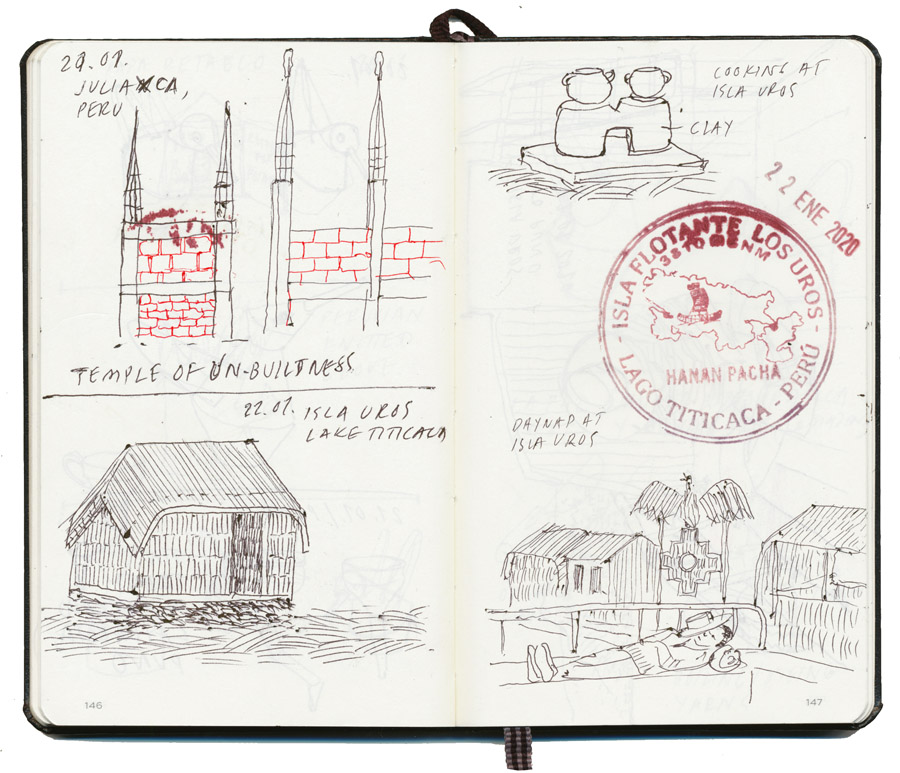 JULIACA,
PERU
TEMPLE OF UN-BUILTNESS
22.01. ISLA UROS
LAKE TITICACA
146
LOOKING AT
ISLA UROS
CLAY
22 ENE 2020
ISLA FLOTANTE LOS UROS
HANAN PACHA
LAGO TITICACA - PERÚ
DAYNAP AT
ISLA UROS
147